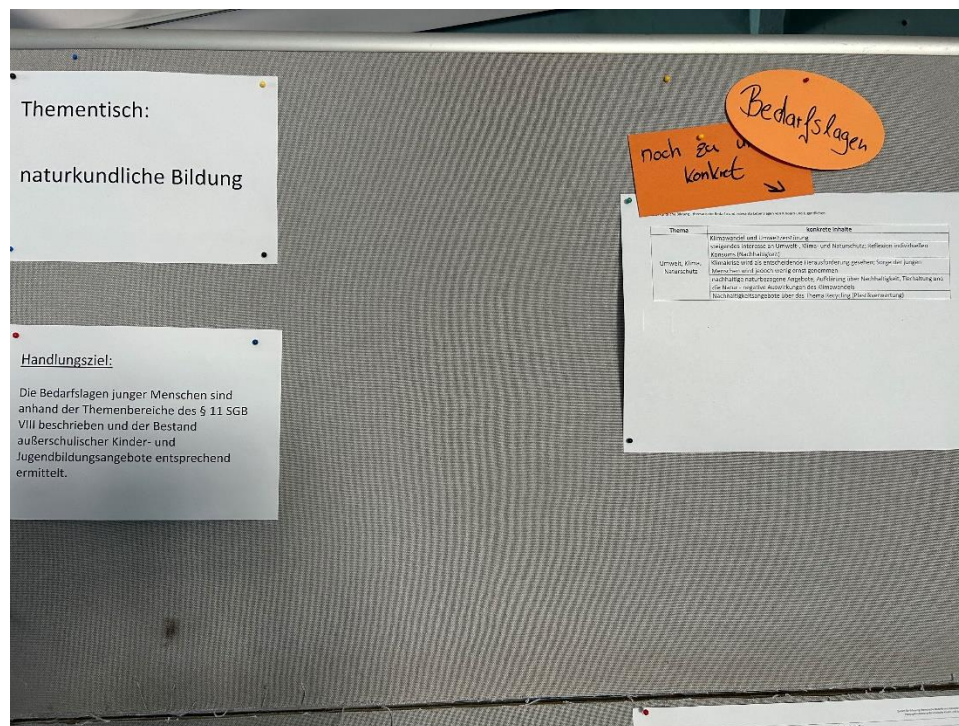 Thementisch:
naturkundliche Bildung
Handlungsziel:
Die Bedarfslagen junger Menschen sind
anhand der Themenbereiche des § 11 SGB
VIII beschrieben und der Bestand
außerschulischer Kinder- und
Jugendbildungsangebote entsprechend
ermittelt.
Bedarfslagen
noch zu
konkret
Thema
konkrete Inhalte
Umwelt, Klima,
Naturschutz
Klimawandel und Umweltzerstörung
steigendes Interesse an Umwelt-, Klima- und Naturschutz; Reflexion individuellen
Konsums (Nachhaltigkeit)
Klimakrise wird als entscheidende Herausforderung gesehen; Sorge der jungen
Menschen wird jedoch wenig ernst genommen
nachhaltige naturbezogene Angebote, Aufklärung über Nachhaltigkeit, Tierhaltung und
die Natur - negative Auswirkungen des Klimawandels
Nachhaltigkeitsangebote über das Thema Recycling (Plastikverwertung)